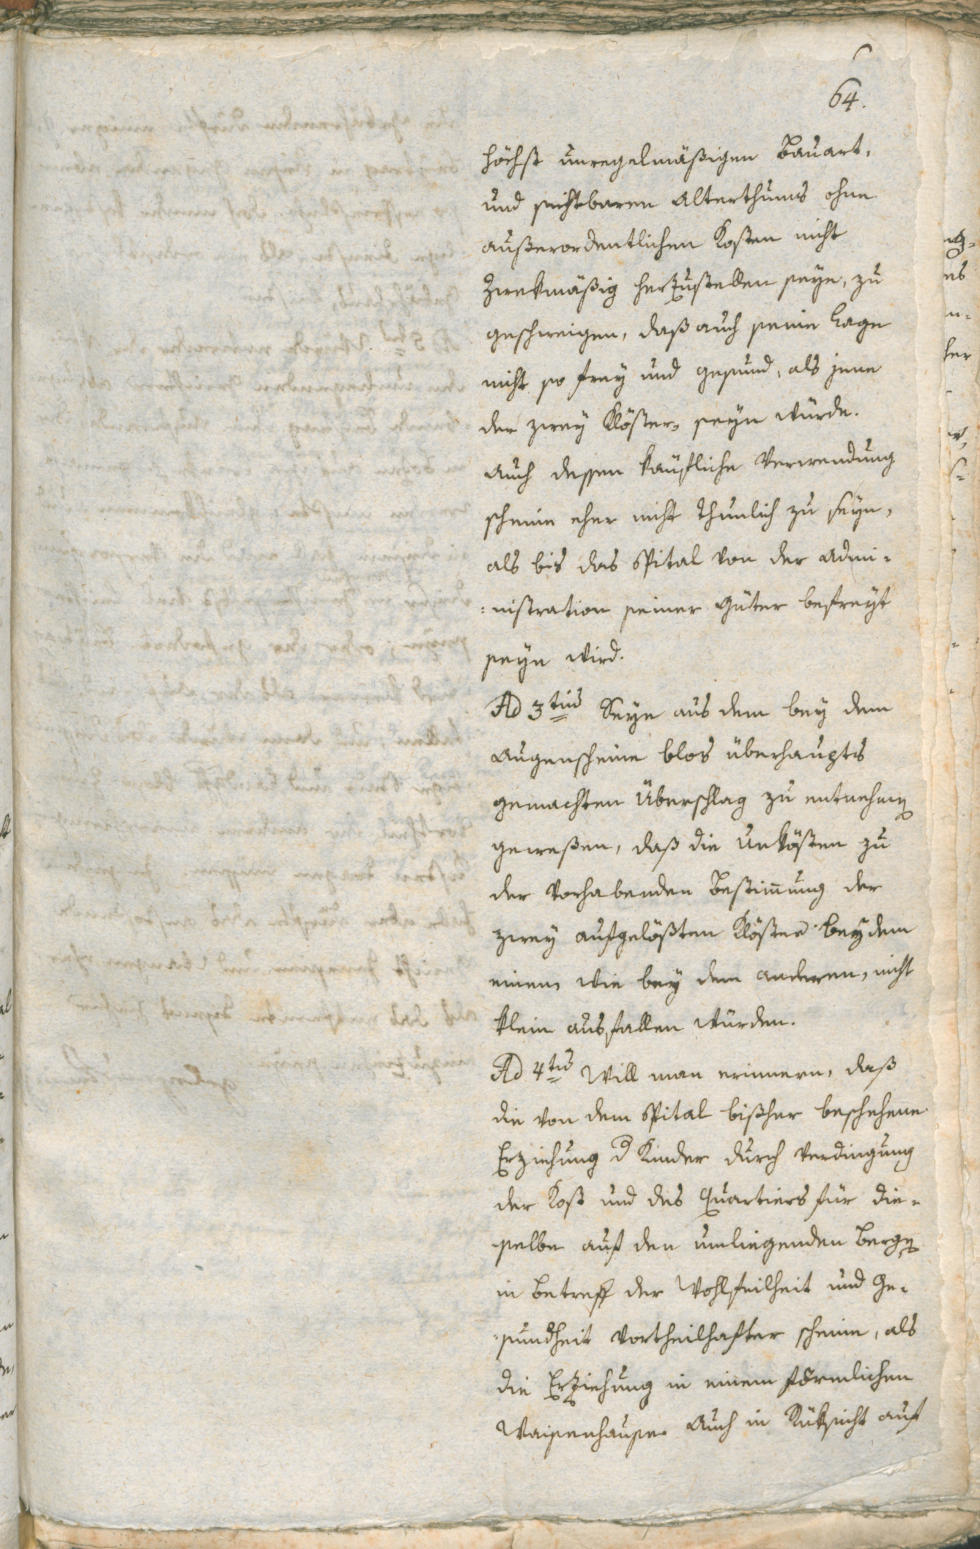 64.
höchst unregelmäßigen Bauart,
und sichtbaren Alterthums ohne
außerordentlichen Kosten nicht
Zwekmäßig herzustellen seye, zu
geschweigen, daß auch seine Lage
nicht so frey und gesund, als jene
der zwey Klöster, seyn würde.
Auch dessen käufliche Verwendung
scheine eher nicht thunlich zu seyn,
als bis das Spital von der Admi-
nistration seiner Güter befreyt
seyn wird.
Ad 3tius Seye aus dem bey dem
Augenscheine blos überhaupts
gemachten Überschlag zu entnehmen
gewesen, daß die Unkösten zu
der vorhabenden Bestimmung der
zwey aufgelößten Klöster bey dem
einem wie bey dem anderen, nicht
klein ausfallen würden.
Ad 4tus Will man erinnern, daß
die von dem Spital bißher beschehene
Erziehung d Kinder durch Verdingung
der Kost und des Quartiers für die-
selbe auf den umliegenden Bergen
in Betreff der Wohlfeilheit und Ge-
sundheit vortheilhafter scheine, als
die Erziehung in einem förmlichen
Waisenhause. Auch in Rüksicht auf